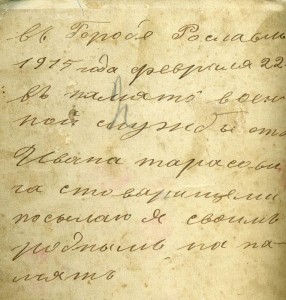 въ Городѣ Рославль
1915 года февраля 22
въ память воен
ной службы отъ
Ивана тарасови
ча стоварищеми
посылаю я своимъ
роднымъ на па
мять